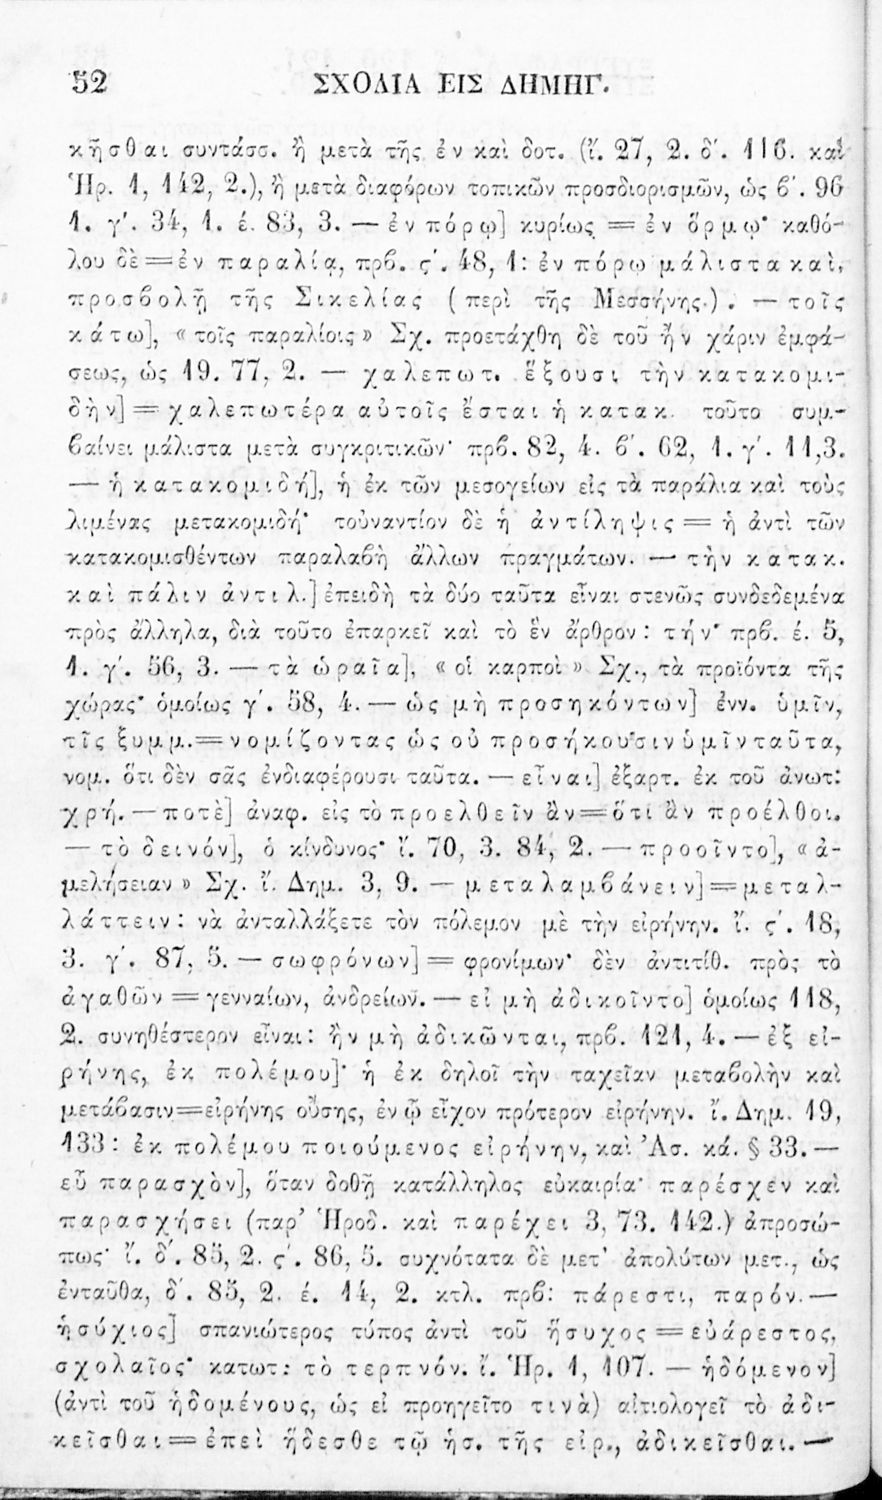 52 ΣΧΟΛΙΑ ΕΙΣ ΔΗΜΗΓ.
κῆσθαι συντάσσ. ἢ μετὰ τῆς ἐν καὶ δοτ. (ἴ. 27, 2. δ'. 116. καὶ
Ἡρ. 1, 142, 2.), ἢ μετὰ διαφόρων τοπικῶν προσδιορισμῶν, ὡς β'. 96
1. γ'. 34, 1. έ. 83, 3. — ἐν πόρῳ] κυρίως = ἐν ὅρμῳ· καθό-
λου δὲ = ἐν παραλίᾳ, πρβ. ς'. 48, 1: ἐν πόρῳ μάλιστα καὶ
προσβολῇ τῆς Σικελίας (περὶ τῆς Μεσσήνης.). — τοῖς
κάτω], «τοῖς παραλίοις» Σχ. προετάχθη δὲ τοῦ ἢν χάριν ἐμφά-
σεως, ὡς 19. 77, 2. — χαλεπωτ. ἕξουσι τὴν κατακομι-
δὴν] = χαλεπωτέρα αὐτοῖς ἔσται ἡ κατακ. τοῦτο συμ-
βαίνει μάλιστα μετὰ συγκριτικῶν· πρβ. 82, 4. β'. 62, 1. γ'. 11,3.
— ἡ κατακομιδή], ἡ ἐκ τῶν μεσογείων εἰς τὰ παράλια καὶ τοὺς
λιμένας μετακομιδή· τοὐναντίον δὲ ἡ ἀντίληψις = ἡ ἀντὶ τῶν
κατακομισθέντων παραλαβὴ ἄλλων πραγμάτων. — τὴν κατακ.
καὶ πάλιν ἀντιλ.] ἐπειδὴ τὰ δύο ταῦτα εἶναι στενῶς συνδεδεμένα
πρὸς ἄλληλα, διὰ τοῦτο ἐπαρκεῖ καὶ τὸ ἓν ἄρθρον: τήν· πρβ. έ. 5,
1. γ'. 56, 3. — τὰ ὡραῖα], «οἱ καρποὶ» Σχ., τὰ προϊόντα τῆς
χώρας· ὁμοίως γ'. 58, 4. — ὡς μὴ προσηκόντων] ἐνν. ὑμῖν,
τῖς ξυμμ. = νομίζοντας ὡς οὐ προσήκουσιν ὑμῖν ταῦτα,
νομ. ὅτι δὲν σᾶς ἐνδιαφέρουσι ταῦτα. — εἶναι] ἐξαρτ. ἐκ τοῦ ἀνωτ:
χρή. — ποτὲ] ἀναφ. εἰς τὸ προελθεῖν ἂν = ὅτι ἂν προέλθοι.
— τὸ δεινόν], ὁ κίνδυνος· ἴ. 70, 3. 84, 2. — προοῖντο], «ἀ-
μελήσειαν» Σχ. ἴ. Δημ. 3, 9. — μεταλαμβάνειν] = μεταλ-
λάττειν: νὰ ἀνταλλάξετε τὸν πόλεμον μὲ τὴν εἰρήνην. ἴ. ς'. 18,
3. γ'. 87, 5. — σωφρόνων] = φρονίμων· δὲν ἀντιτίθ. πρὸς τὸ
ἀγαθῶν = γενναίων, ἀνδρείων. — εἰ μὴ ἀδικοῖντο] ὁμοίως 118,
2. συνηθέστερον εἶναι: ἢν μὴ ἀδικῶνται, πρβ. 121, 4. — ἐξ εἰ-
ρήνης, ἐκ πολέμου]· ἡ ἐκ δηλοῖ τὴν ταχεῖαν μεταβολὴν καὶ
μετάβασιν = εἰρήνης οὔσης, ἐν ᾧ εἶχον πρότερον εἰρήνην. ἴ. Δημ. 19,
133: ἐκ πολέμου ποιούμενος εἰρήνην, καὶ Ἀσ. κά. § 33. —
εὖ παρασχὸν], ὅταν δοθῇ κατάλληλος εὐκαιρία· παρέσχεν καὶ
παρασχήσει (παρ' Ἡροδ. καὶ παρέχει 3, 73. 142.) ἀπροσώ-
πως· ἴ. δ'. 85, 2. ς'. 86, 5. συχνότατα δὲ μετ' ἀπολύτων μετ., ὡς
ἐνταῦθα, δ'. 85, 2. έ. 14, 2. κτλ. πρβ: πάρεστι, παρόν. —
ἡσύχιος] σπανιώτερος τύπος ἀντὶ τοῦ ἥσυχος = εὐάρεστος,
σχολαῖος· κατωτ: τὸ τερπνόν. ἴ. Ἡρ. 1, 107. — ἡδόμενον]
(ἀντὶ τοῦ ἡδομένους, ὡς εἰ προηγεῖτο τινὰ) αἰτιολογεῖ τὸ ἀδι-
κεῖσθαι = ἐπεὶ ἥδεσθε τῷ ἡσ. τῆς εἰρ., ἀδικεῖσθαι. —